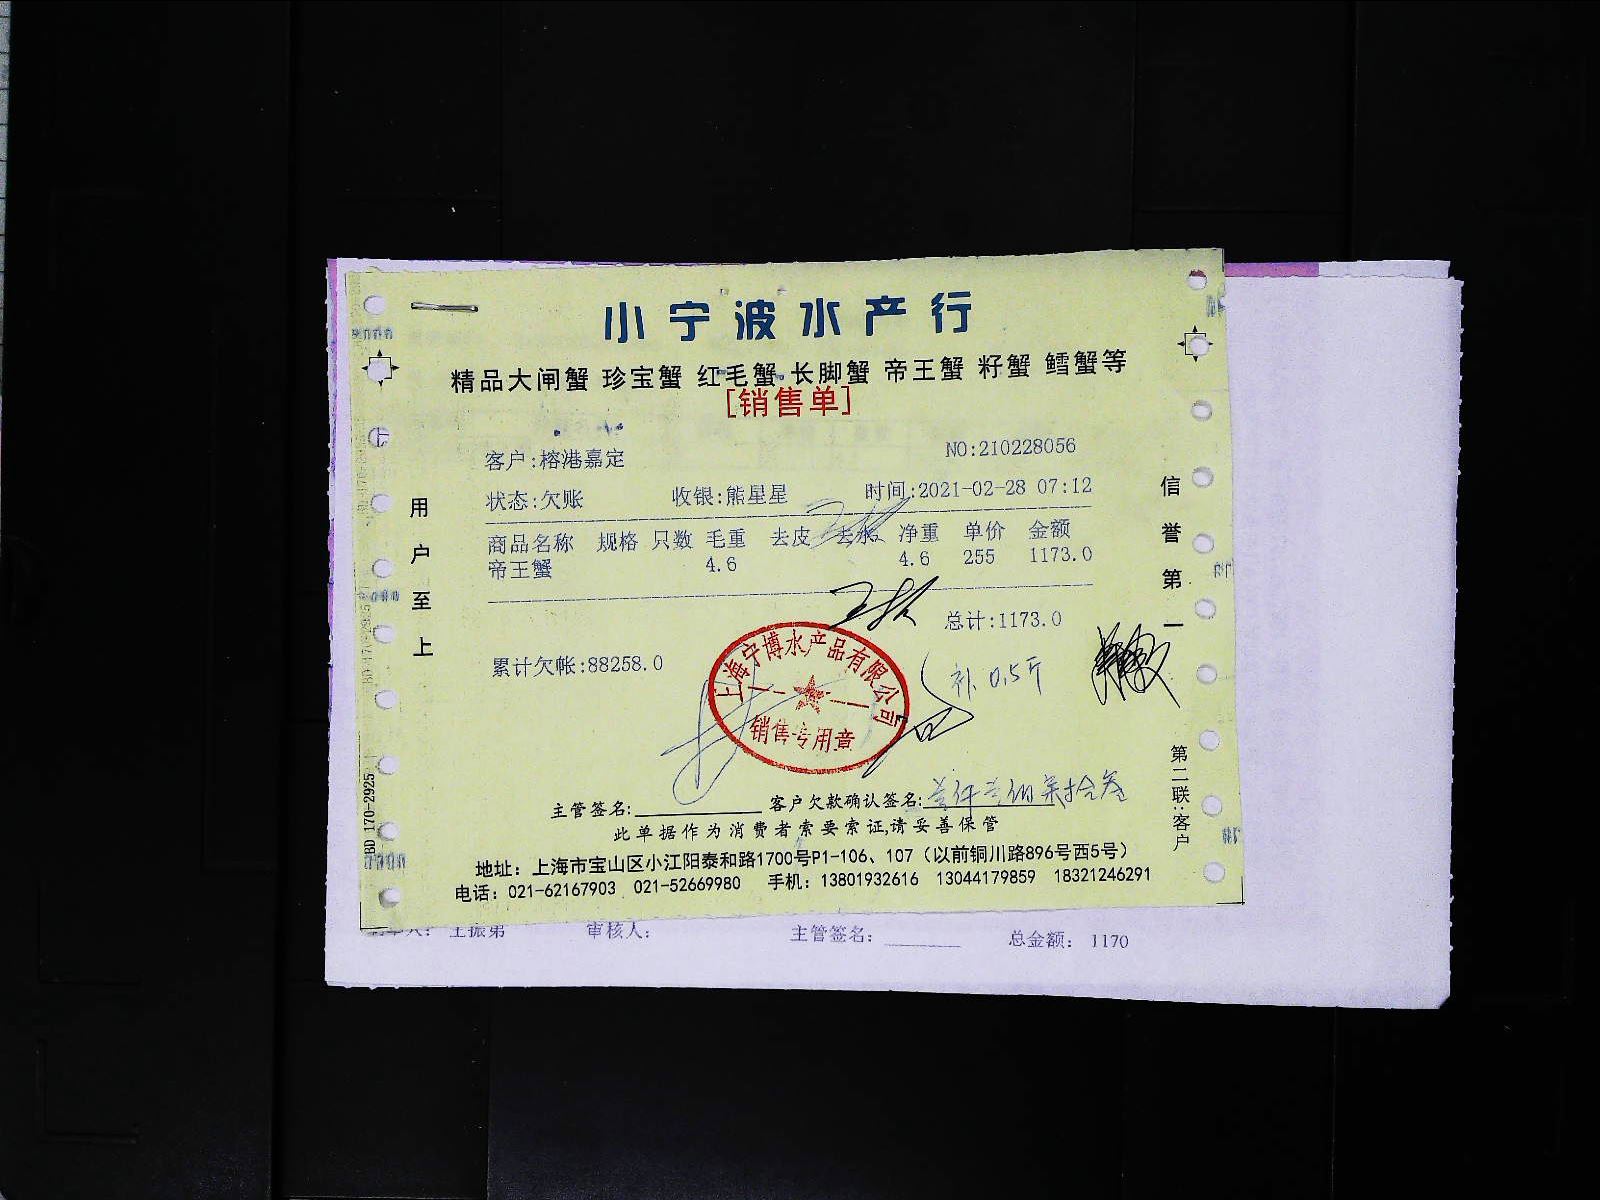 小宁波水产行
精品大闸蟹 珍宝蟹 红毛蟹 长脚蟹 帝王蟹 籽蟹 鳕蟹等
[销售单]
客户:榕港嘉定
NO:210228056
状态:欠账 收银:熊星星 时间:2021-02-28 07:12
商品名称 规格 只数 毛重 去皮 去水 净重 单价 金额
帝王蟹 4.6 4.6 255 1173.0
总计:1173.0
累计欠帐:88258.0
补 0.5斤
上海宁博水产品有限公司
销售专用章
主管签名: 客户欠款确认签名:壹仟壹佰柒拾叁
此单据作为消费者索要索证,请妥善保管
地址：上海市宝山区小江阳泰和路1700号P1-106、107（以前铜川路896号西5号）
电话：021-62167903 021-52669980 手机：13801932616 13044179859 18321246291
用户至上
信誉第一
第二联:客户
BD 170-2925
王振第 审核人： 主管签名： 总金额： 1170